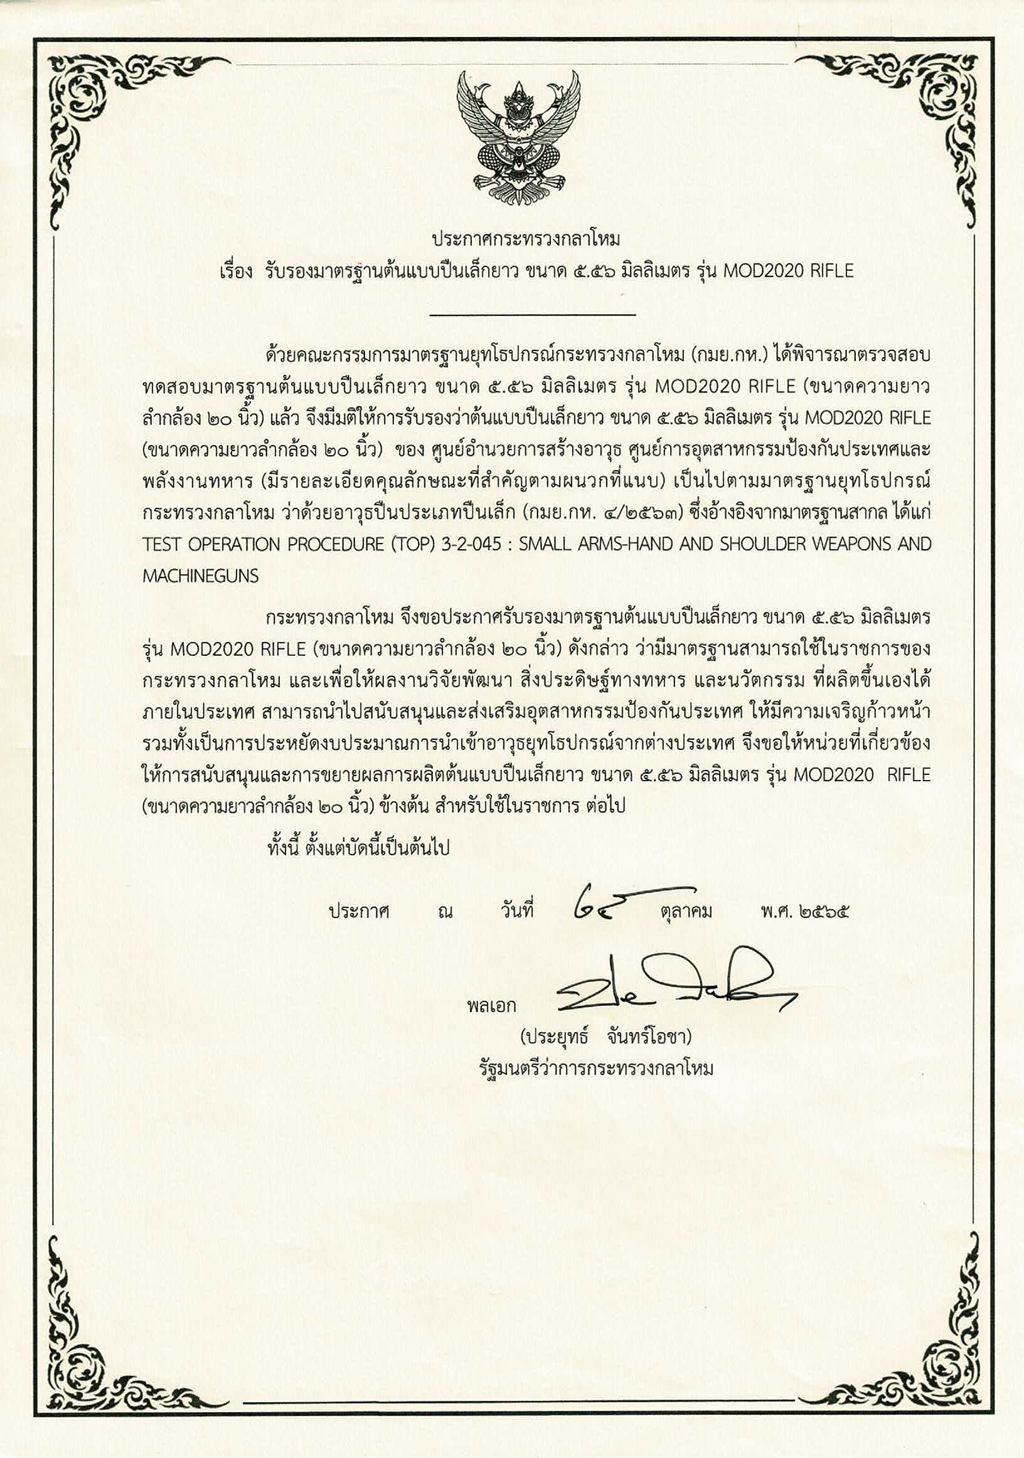 ประกาศกระทรวงกลาโหม
เรื่อง รับรองมาตรฐานต้นแบบปืนเล็กยาว ขนาด ๕.๕๖ มิลลิเมตร รุ่น MOD2020 RIFLE
ด้วยคณะกรรมการมาตรฐานยุทโธปกรณ์กระทรวงกลาโหม (กมย.กห.) ได้พิจารณาตรวจสอบ
ทดสอบมาตรฐานต้นแบบปืนเล็กยาว ขนาด ๕.๕๖ มิลลิเมตร รุ่น MOD2020 RIFLE (ขนาดความยาว
ลำกล้อง ๒๐ นิ้ว) แล้ว จึงมีมติให้การรับรองว่าต้นแบบปืนเล็กยาว ขนาด ๕.๕๖ มิลลิเมตร รุ่น MOD2020 RIFLE
(ขนาดความยาวลำกล้อง ๒๐ นิ้ว) ของ ศูนย์อำนวยการสร้างอาวุธ ศูนย์การอุตสาหกรรมป้องกันประเทศและ
พลังงานทหาร (มีรายละเอียดคุณลักษณะที่สำคัญตามผนวกที่แนบ) เป็นไปตามมาตรฐานยุทโธปกรณ์
กระทรวงกลาโหม ว่าด้วยอาวุธปืนประเภทปืนเล็ก (กมย.กห. ๔/๒๕๖๓) ซึ่งอ้างอิงจากมาตรฐานสากล ได้แก่
TEST OPERATION PROCEDURE (TOP) 3-2-045 : SMALL ARMS-HAND AND SHOULDER WEAPONS AND
MACHINEGUNS
กระทรวงกลาโหม จึงขอประกาศรับรองมาตรฐานต้นแบบปืนเล็กยาว ขนาด ๕.๕๖ มิลลิเมตร
รุ่น MOD2020 RIFLE (ขนาดความยาวลำกล้อง ๒๐ นิ้ว) ดังกล่าว ว่ามีมาตรฐานสามารถใช้ในราชการของ
กระทรวงกลาโหม และเพื่อให้ผลงานวิจัยพัฒนา สิ่งประดิษฐ์ทางทหาร และนวัตกรรม ที่ผลิตขึ้นเองได้
ภายในประเทศ สามารถนำไปสนับสนุนและส่งเสริมอุตสาหกรรมป้องกันประเทศ ให้มีความเจริญก้าวหน้า
รวมทั้งเป็นการประหยัดงบประมาณการนำเข้าอาวุธยุทโธปกรณ์จากต่างประเทศ จึงขอให้หน่วยที่เกี่ยวข้อง
ให้การสนับสนุนและการขยายผลการผลิตต้นแบบปืนเล็กยาว ขนาด ๕.๕๖ มิลลิเมตร รุ่น MOD2020 RIFLE
(ขนาดความยาวลำกล้อง ๒๐ นิ้ว) ข้างต้น สำหรับใช้ในราชการ ต่อไป
ทั้งนี้ ตั้งแต่บัดนี้เป็นต้นไป
ประกาศ ณ วันที่ ตุลาคม พ.ศ. ๒๕๖๕
พลเอก
(ประยุทธ์ จันทร์โอชา)
รัฐมนตรีว่าการกระทรวงกลาโหม